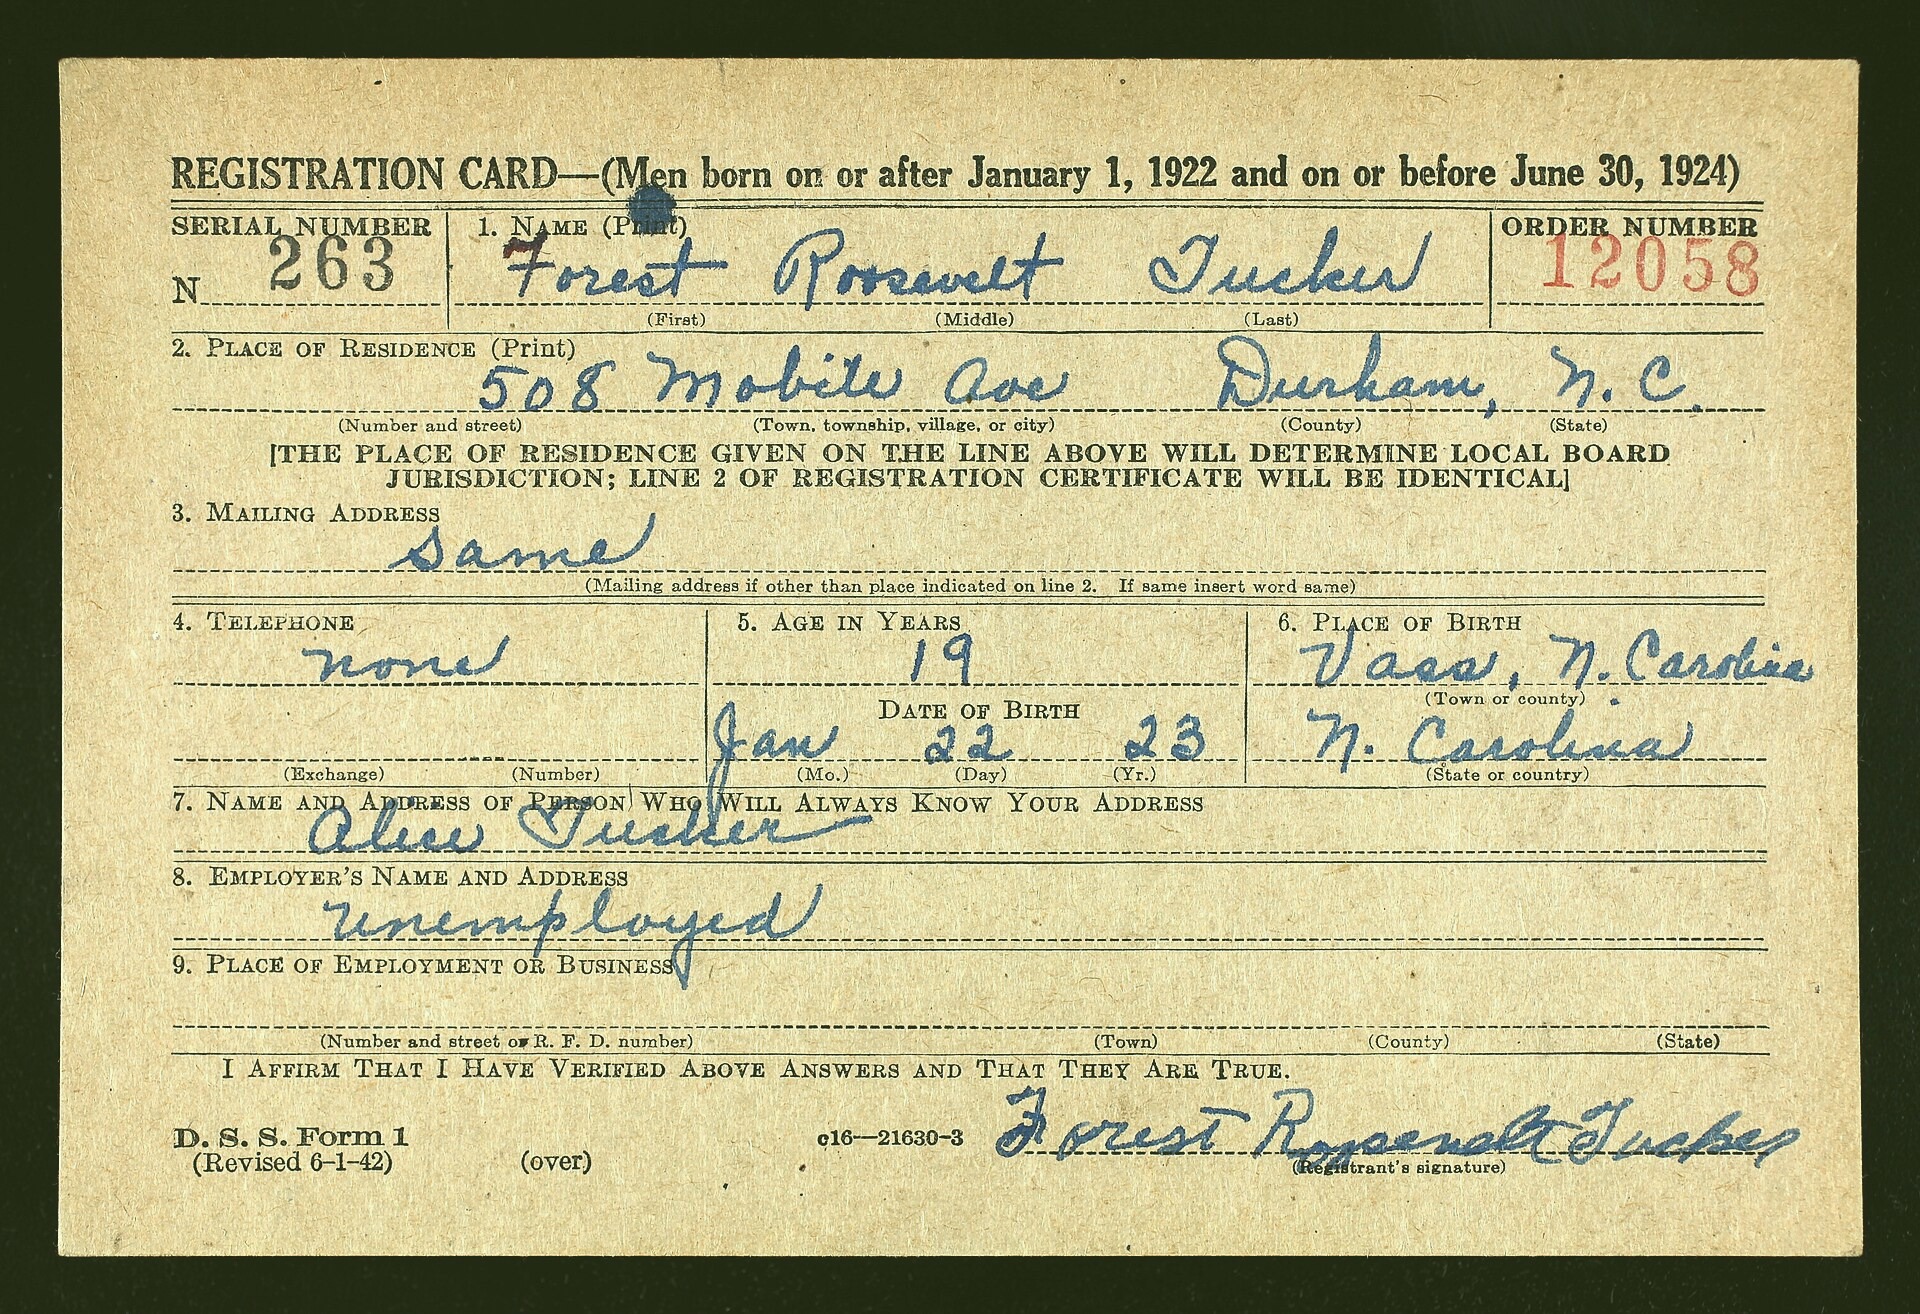 REGISTRATION CARD—(Men born on or after January 1, 1922 and on or before June 30, 1924)
SERIAL NUMBER 1. NAME (Print) ORDER NUMBER
N 263 Forest Roosevelt Tucker 12058
(First) (Middle) (Last)
2. PLACE OF RESIDENCE (Print)
508 Mobile Ave Durham, N. C.
(Number and street) (Town, township, village, or city) (County) (State)
[THE PLACE OF RESIDENCE GIVEN ON THE LINE ABOVE WILL DETERMINE LOCAL BOARD
JURISDICTION; LINE 2 OF REGISTRATION CERTIFICATE WILL BE IDENTICAL]
3. MAILING ADDRESS
same
(Mailing address if other than place indicated on line 2. If same insert word same)
4. TELEPHONE 5. AGE IN YEARS 6. PLACE OF BIRTH
none 19 Vass, N. Carolina
(Town or county)
DATE OF BIRTH
Jan 22 23 N. Carolina
(Exchange) (Number) (Mo.) (Day) (Yr.) (State or country)
7. NAME AND ADDRESS OF PERSON WHO WILL ALWAYS KNOW YOUR ADDRESS
Alice Tucker
8. EMPLOYER'S NAME AND ADDRESS
unemployed
9. PLACE OF EMPLOYMENT OR BUSINESS
(Number and street or R. F. D. number) (Town) (County) (State)
I AFFIRM THAT I HAVE VERIFIED ABOVE ANSWERS AND THAT THEY ARE TRUE.
D. S. S. Form 1 c16—21630-3 Forest Roosevelt Tucker
(Revised 6-1-42) (over) (Registrant's signature)